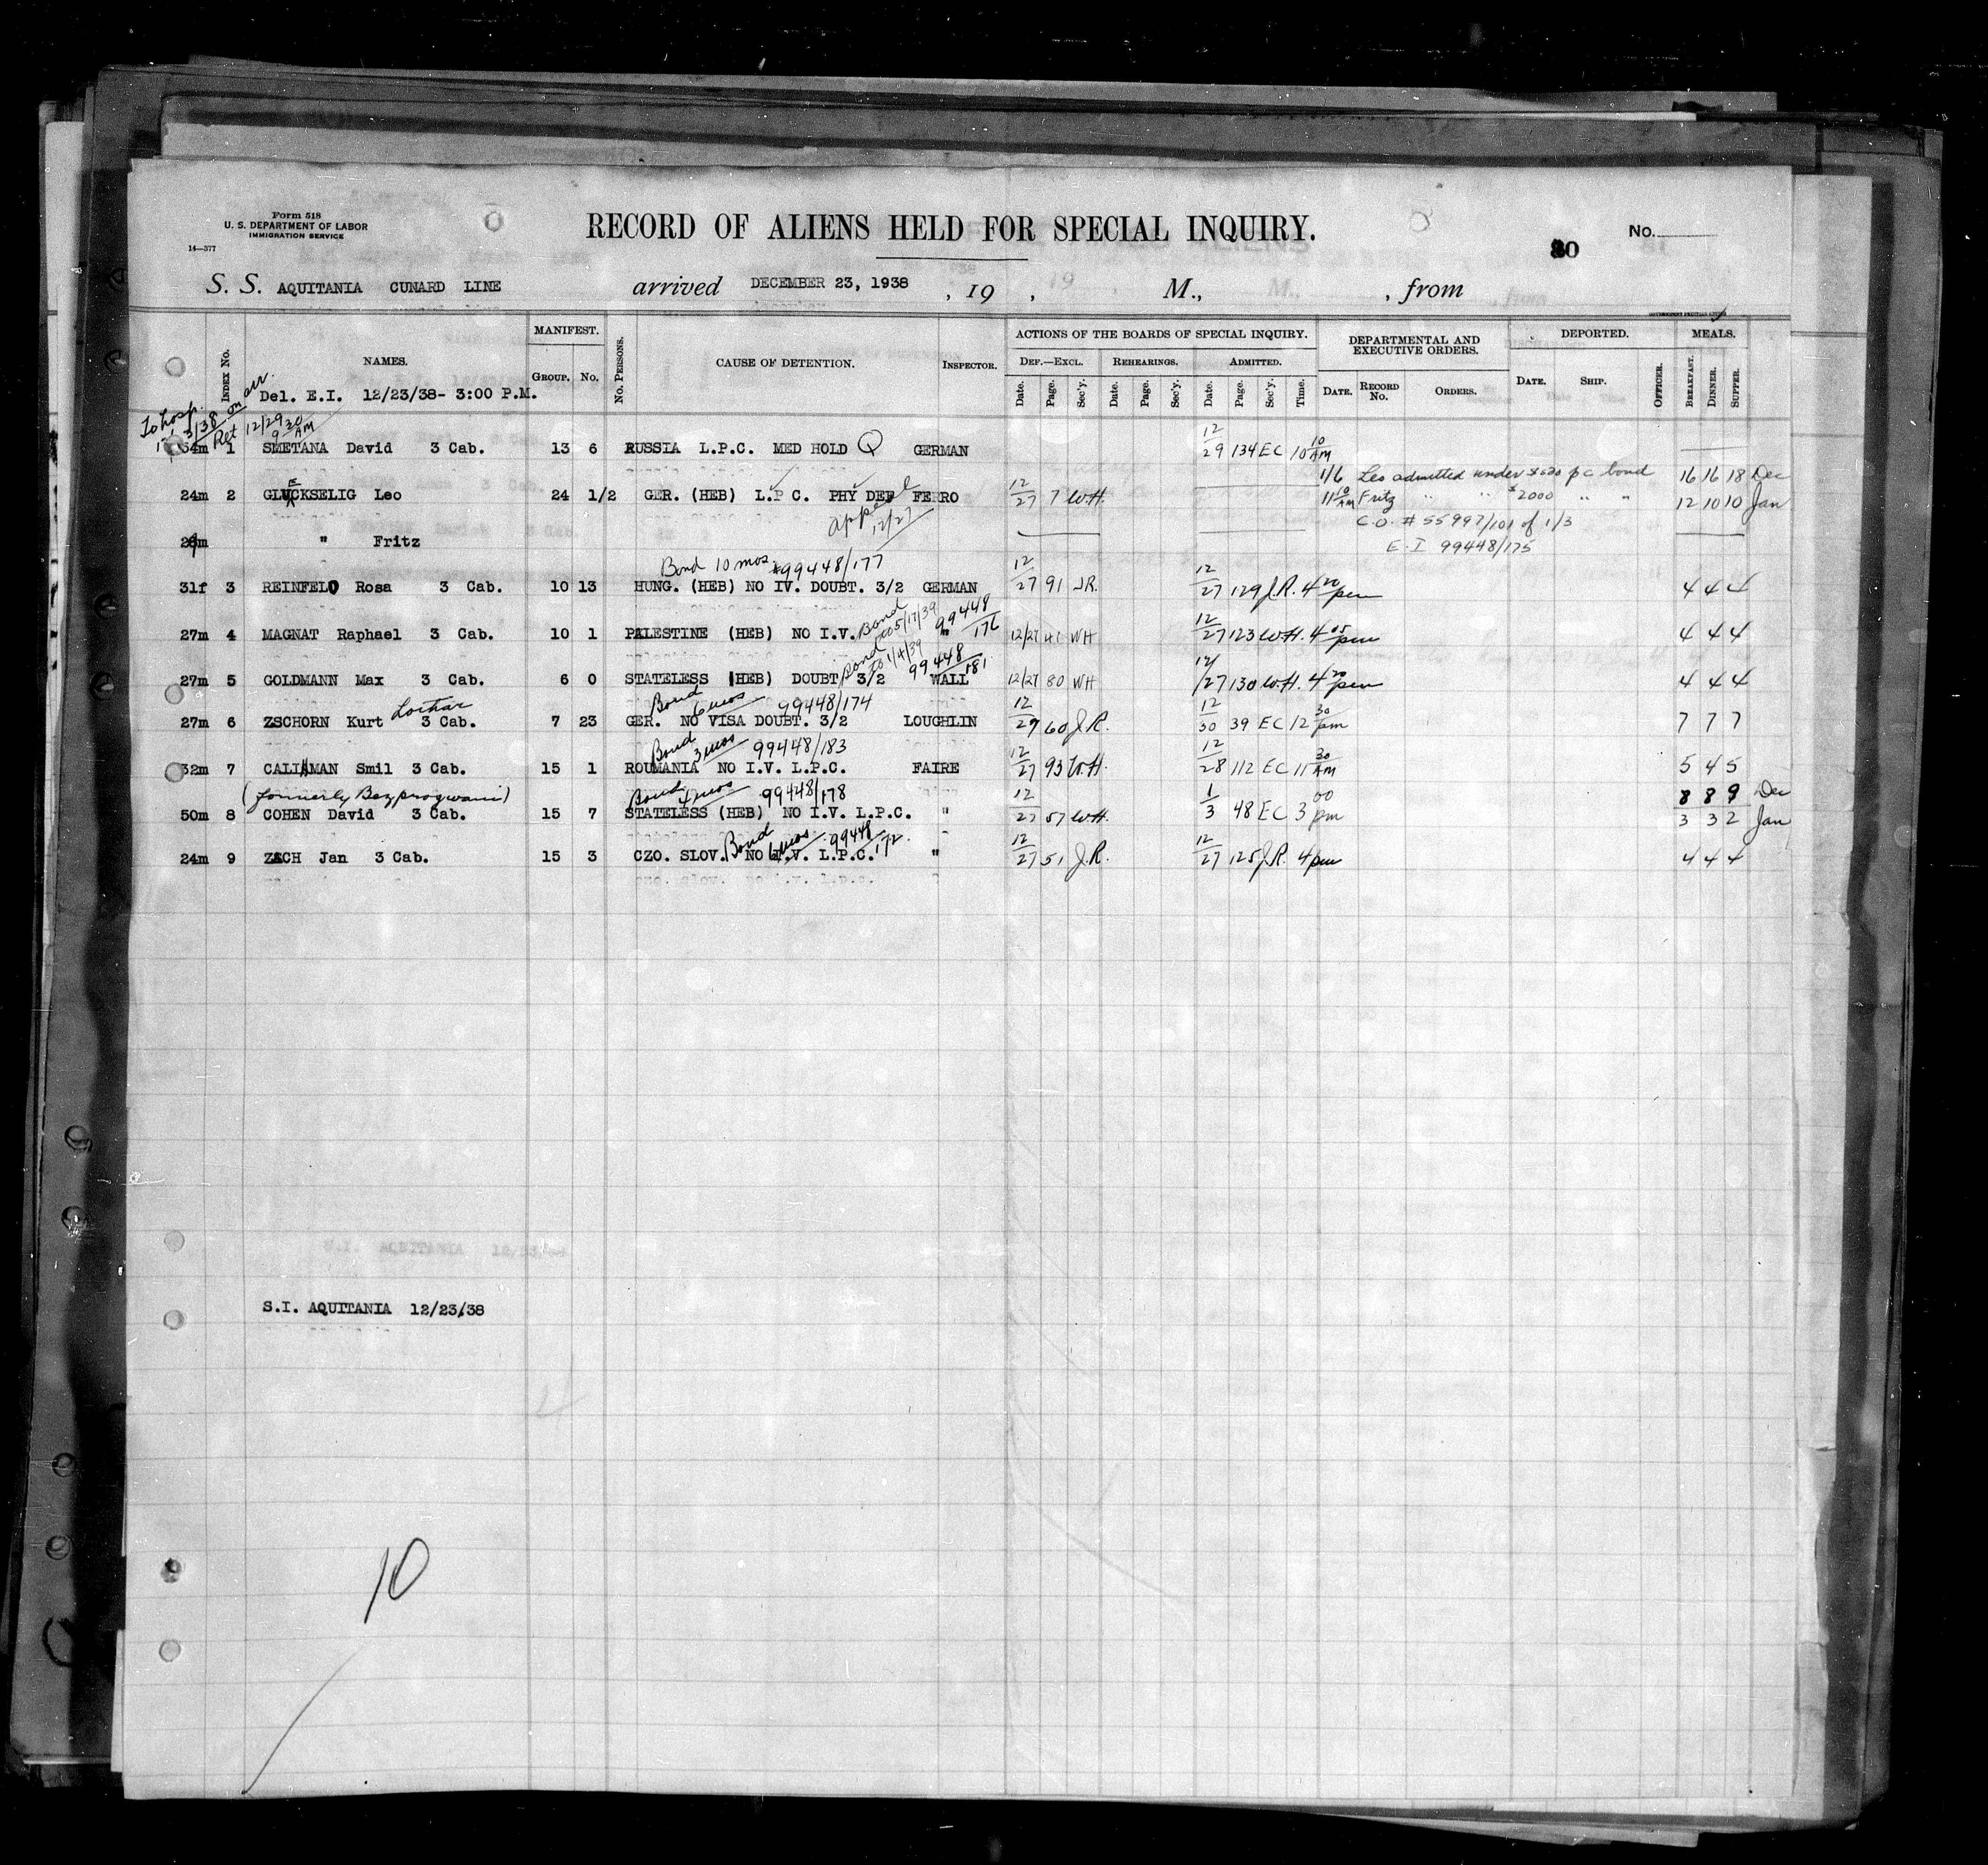 Form 518
U. S. DEPARTMENT OF LABOR
IMMIGRATION SERVICE
14—377
RECORD OF ALIENS HELD FOR SPECIAL INQUIRY.
No.
S. S. AQUITANIA CUNARD LINE arrived DECEMBER 23, 1938 , 19 , M., , from
INDEX No. NAMES. MANIFEST. GROUP. No. No. PERSONS. CAUSE OF DETENTION. INSPECTOR. ACTIONS OF THE BOARDS OF SPECIAL INQUIRY. DEPARTMENTAL AND EXECUTIVE ORDERS. DEPORTED. MEALS.
DEF.—EXCL. REHEARINGS. ADMITTED.
Date. Page. Sec'y. Date. Page. Sec'y. Date. Page. Sec'y. Time. DATE. RECORD No. ORDERS. DATE. SHIP. OFFICER. BREAKFAST. DINNER. SUPPER.
Del. E.I. 12/23/38- 3:00 P.M.
To hosp. on arr.
Ret 12/29 9 30 AM
1 SMETANA David 3 Cab. 13 6 RUSSIA L.P.C. MED HOLD Q GERMAN 12/29 134 EC 10 10 AM
1/6 Leo admitted under p c bond 16 16 18 Dec
24m 2 GLUECKSELIG Leo 24 1/2 GER. (HEB) L.P C. PHY DEF FERRO 12/27 7 W.H. 11 10 AM Fritz " " $2000 " " 12 10 10 Jan
appeal 12/27
C.O. # 55997/101 of 1/3
" Fritz E.I 99448/175
Bond 10 mos #99448/177
31f 3 REINFELD Rosa 3 Cab. 10 13 HUNG. (HEB) NO IV. DOUBT. 3/2 GERMAN 12/27 91 J.R. 12/27 129 J.R. 4 20 pm 4 4 4
Bond to 5/17/39 99448/176
27m 4 MAGNAT Raphael 3 Cab. 10 1 PALESTINE (HEB) NO I.V. " 12/27 41 WH 12/27 123 W.H. 4 05 pm 4 4 4
Bond to 1/4/39 99448/181
27m 5 GOLDMANN Max 3 Cab. 6 0 STATELESS (HEB) DOUBT 3/2 WALL 12/27 80 WH 12/27 130 W.H. 4 20 pm 4 4 4
Lothar
Bond 6 mos 99448/174
27m 6 ZSCHORN Kurt 3 Cab. 7 23 GER. NO VISA DOUBT. 3/2 LOUGHLIN 12/27 60 J.R. 12/30 39 EC 12 30 pm 7 7 7
Bond 3 mos 99448/183
32m 7 CALIMAN Smil 3 Cab. 15 1 ROUMANIA NO I.V. L.P.C. FAIRE 12/27 93 W.H. 12/28 112 EC 11 30 AM 5 4 5
(formerly Bezprozwanii)
Bond 4 mos 99448/178 8 8 9 Dec
50m 8 COHEN David 3 Cab. 15 7 STATELESS (HEB) NO I.V. L.P.C. " 12/27 57 W.H. 1/3 48 EC 3 00 pm 3 3 2 Jan
Bond 6 mos 99448/172
24m 9 ZACH Jan 3 Cab. 15 3 CZO. SLOV. NO I.V. L.P.C. " 12/27 51 J.R. 12/27 125 J.R. 4 pm 4 4 4
S.I. AQUITANIA 12/23/38
10